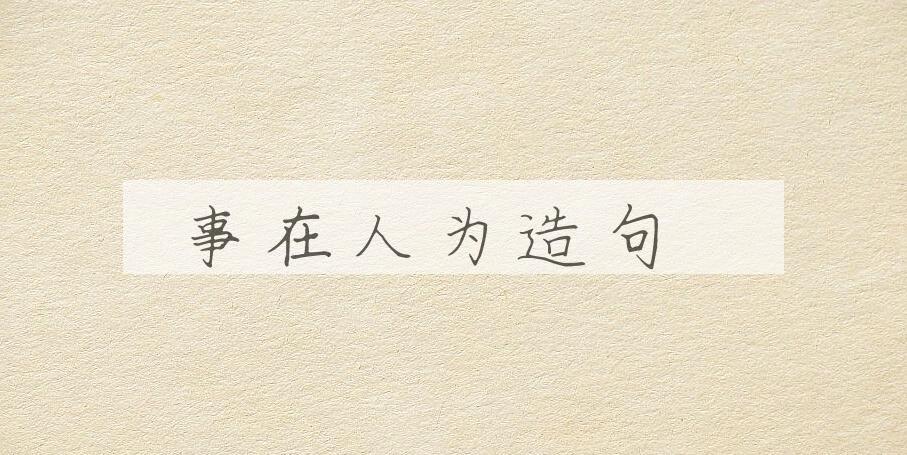 事在人为造句